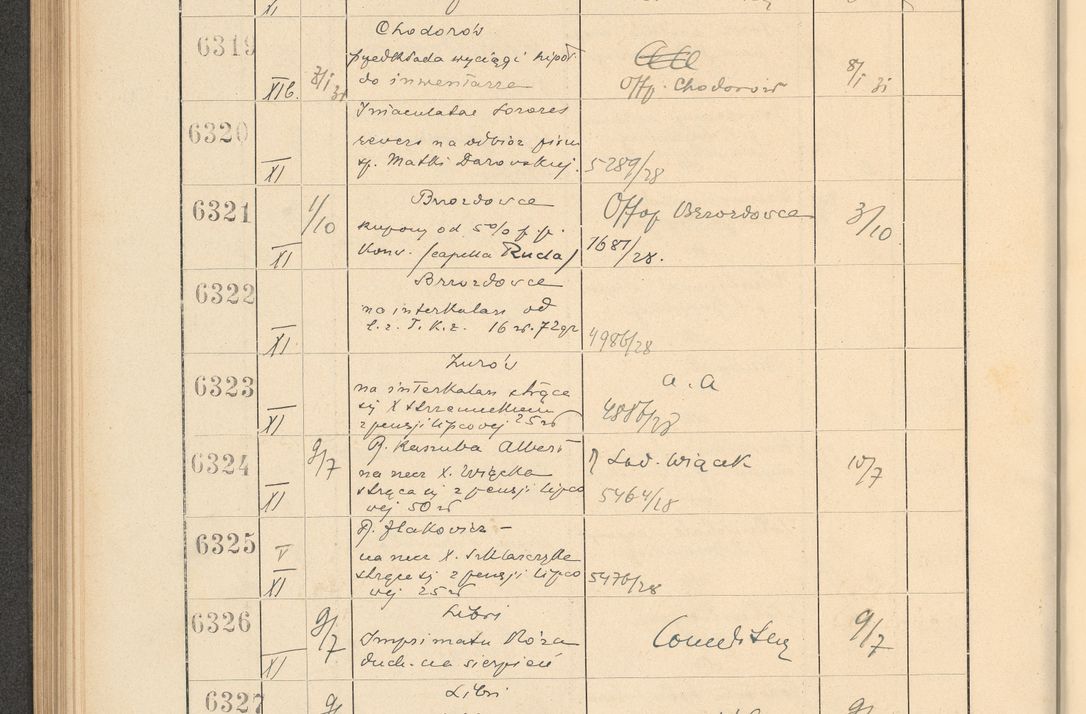 6319
Chodorów
przedkłada wyciągi hipot
do inwentarza
XIb.
Off. Chodorów
8/I 31
6320
Imaculatae Sorores
revers na odbiór pism
sp. Matki Darowskiej.
XI
5289/28
6321
1/10
Brzozdowce
kupony od 5%
Konw. (capella Ruda)
XI
Off Brzozdowce
1687/28.
3/10
6322
Brzozdowce
na interkalar od
16 zł. 72 gr
XI
4986/28
6323
Żurów
na interkalar strąca
się X
z pensji lipcowej 25 zł
XI
a. a
4886/28
6324
9/7
P. Kaszuba Albert
na rzecz X. Wiącka
strąca się z pensji lipco
wej 50 zł
XI
Lud. Wiącek
5464/28
10/7
6325
V
XI
na rzecz X. Szklarczyka
strąca się z pensji lipco
wej 25 zł
5470/28
6326
9/7
Libri
Imprimatur Róża
duch. na sierpień
XI
9/7
6327
Libri